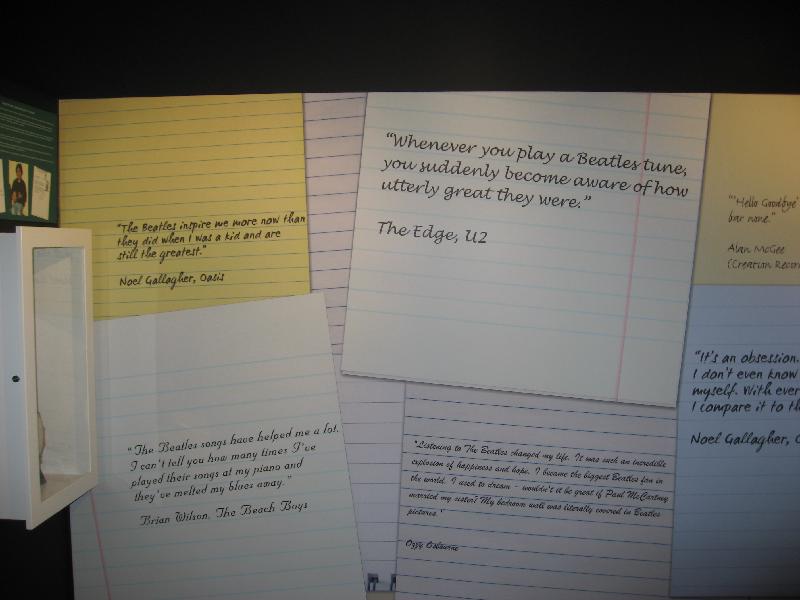 "The Beatles inspire me more now than
they did when I was a kid and are
still the greatest."
Noel Gallagher, Oasis
"Whenever you play a Beatles tune,
you suddenly become aware of how
utterly great they were."
The Edge, U2
"'Hello Goodbye'
bar none."
Alan McGee
(Creation Recor
"The Beatles songs have helped me a lot.
I can't tell you how many times I've
played their songs at my piano and
they've melted my blues away."
Brian Wilson, The Beach Boys
"Listening to The Beatles changed my life. It was such an incredible
explosion of happiness and hope. I became the biggest Beatles fan in
the world. I used to dream – wouldn't it be great if Paul McCartney
married my sister? My bedroom wall was literally covered in Beatles
pictures."
Ozzy Osbourne
"It's an obsession.
I don't even know
myself. With ever
I compare it to th
Noel Gallagher, O